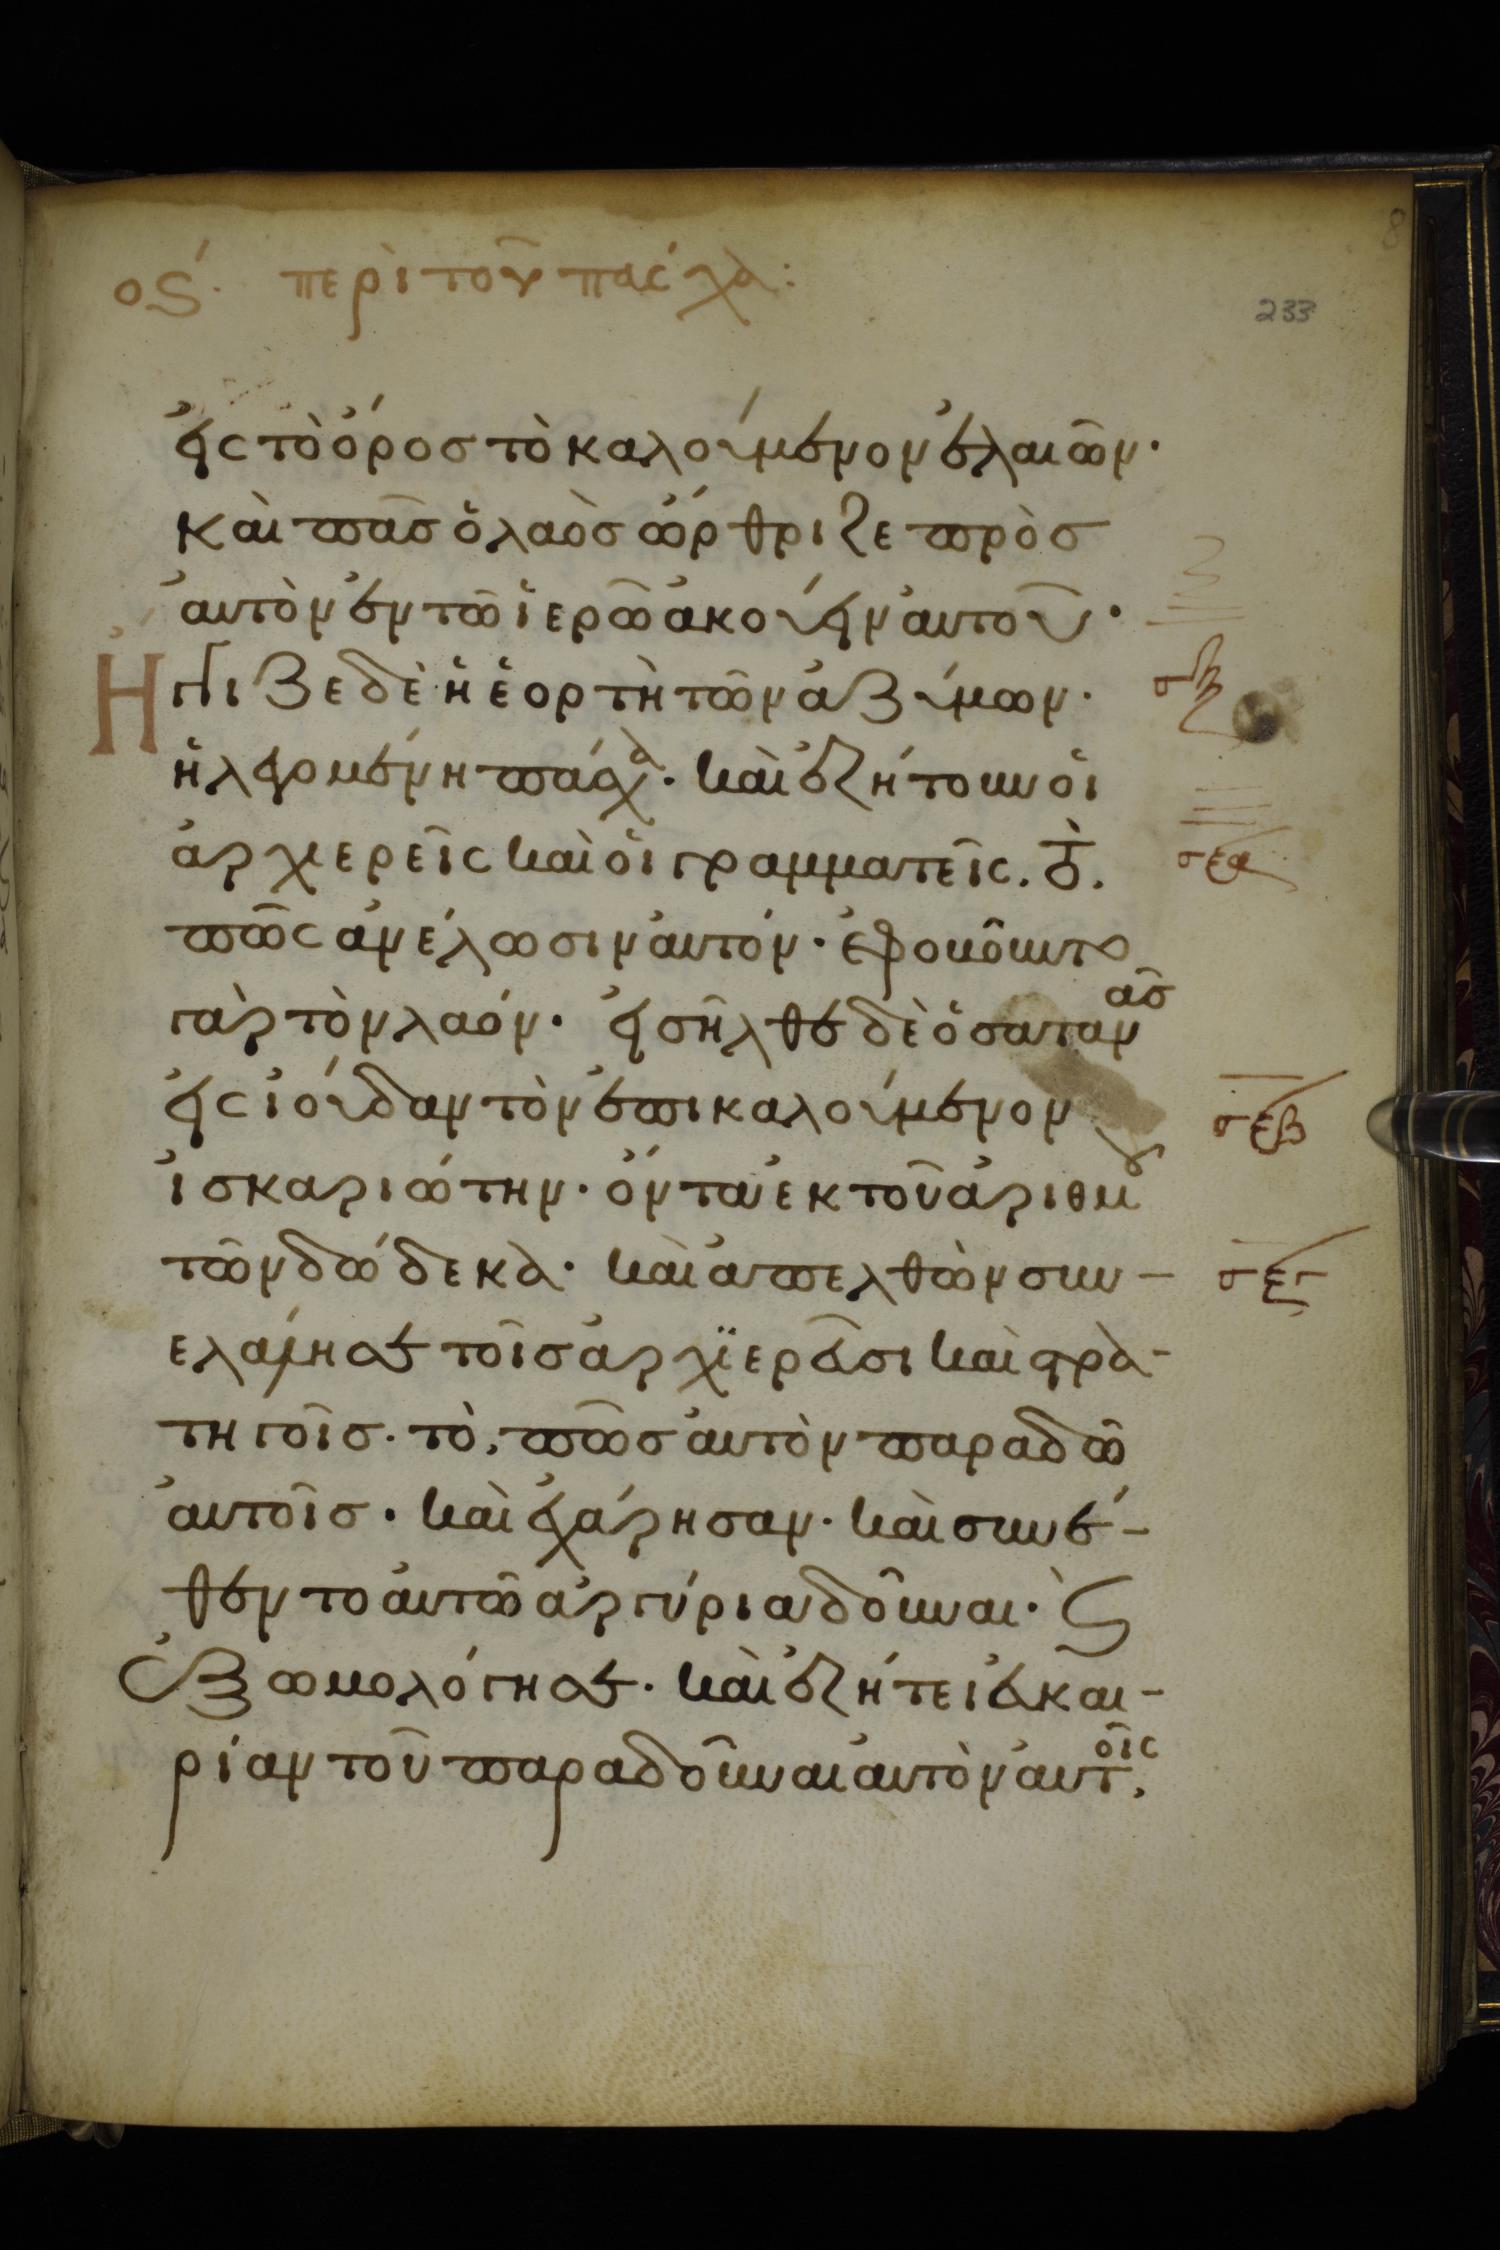 ος´. περὶ τοῦ πάσχα:
8
233
εἰς τὸ ὄρος τὸ καλούμενον ἐλαιῶν·
καὶ πᾶς ὁ λαὸς ὤρθριζε πρὸς
αὐτὸν ἐν τῶ ἱερῶ ἀκούειν αὐτοῦ·
Ἤγγιζε δὲ ἡ ἑορτὴ τῶν ἀζύμων· σξ
ἡ λεγομένη πάσχα· καὶ ἐζήτουν οἱ
ἀρχιερεῖς καὶ οἱ γραμματεῖς. τὸ. σξα
πῶς ἀνέλωσιν αὐτόν· ἐφοβοῦντο
γὰρ τὸν λαόν· εἰσῆλθε δὲ ὁ σατανᾶς
εἰς ἰούδαν τὸν ἐπικαλούμενον σξβ
ἰσκαριώτην· ὄντα ἐκ τοῦ ἀριθμοῦ
τῶν δώδεκα· καὶ ἀπελθὼν συν- σξγ
ελάλησε τοῖς ἀρχϊερεῦσι καὶ στρα-
τηγοῖς· τὸ, πῶς αὐτὸν παραδῶ
αὐτοῖς· καὶ ἐχάρησαν· καὶ συνέ-
θεντο αὐτῶ ἀργύρια δοῦναι· ϗ
ἐξωμολόγησε· καὶ ἐζήτει εὐκαι-
ρίαν τοῦ παραδοῦναι αὐτὸν αὐτοῖς,